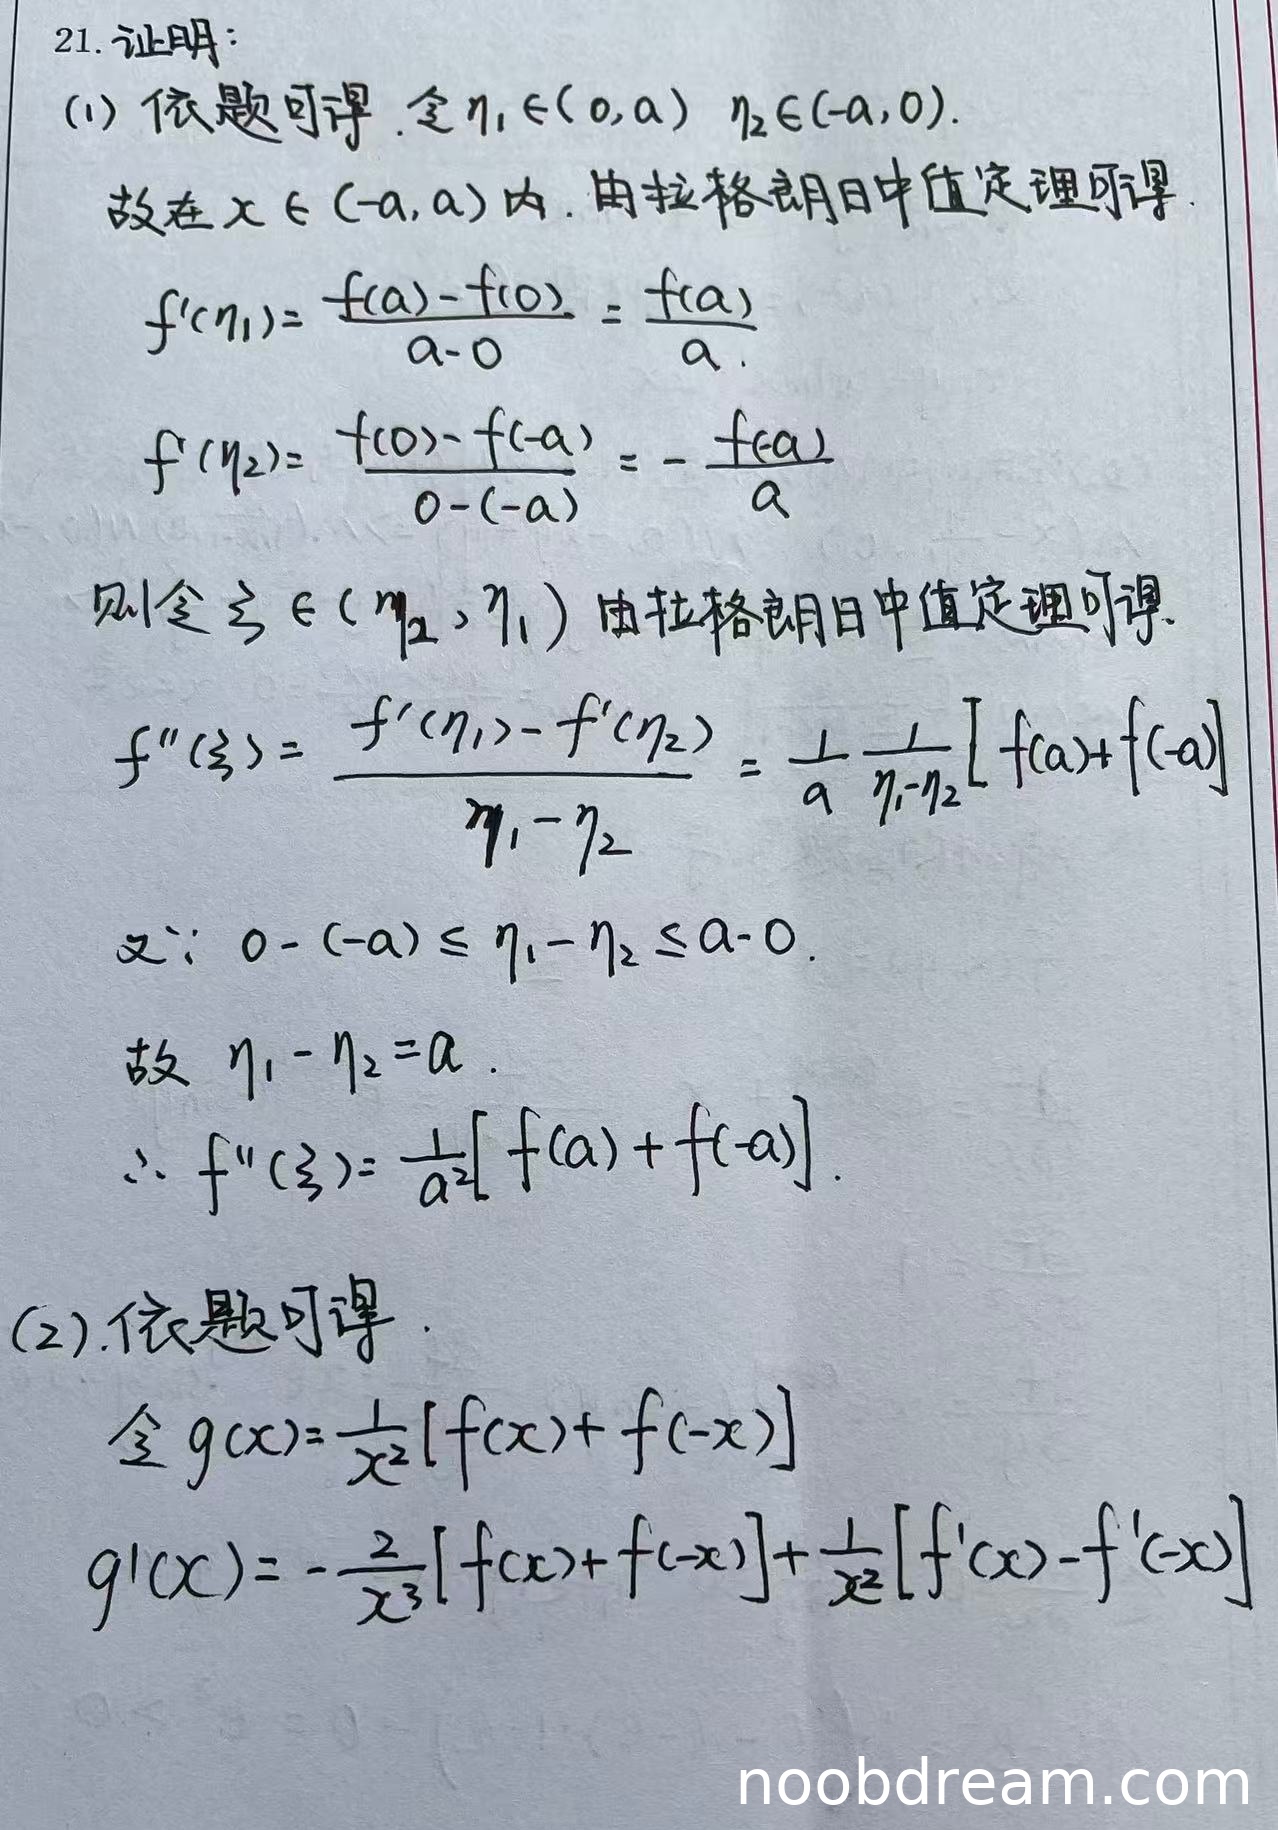 21. 证明:
(1) 依题可得.令η₁∈(0,a) η₂∈(-a,0).
故在x∈(-a,a)内.由拉格朗日中值定理可得.
f'(η₁)= \frac{f(a)-f(0)}{a-0} = \frac{f(a)}{a}.
f'(η₂)= \frac{f(0)-f(-a)}{0-(-a)} = - \frac{f(-a)}{a}
则令ξ∈(η₂,η₁)由拉格朗日中值定理可得.
f''(ξ)= \frac{f'(η₁)-f'(η₂)}{η₁-η₂} = \frac{1}{a} \frac{1}{η₁-η₂} [f(a)+f(-a)]
又∵ 0-(-a)≤η₁-η₂≤a-0.
故 η₁-η₂=a.
∴ f''(ξ)= \frac{1}{a²}[f(a)+f(-a)].
(2).依题可得.
令g(x)= \frac{1}{x²}[f(x)+f(-x)]
g'(x)= - \frac{2}{x³}[f(x)+f(-x)]+ \frac{1}{x²}[f'(x)-f'(-x)]
noobdream.com